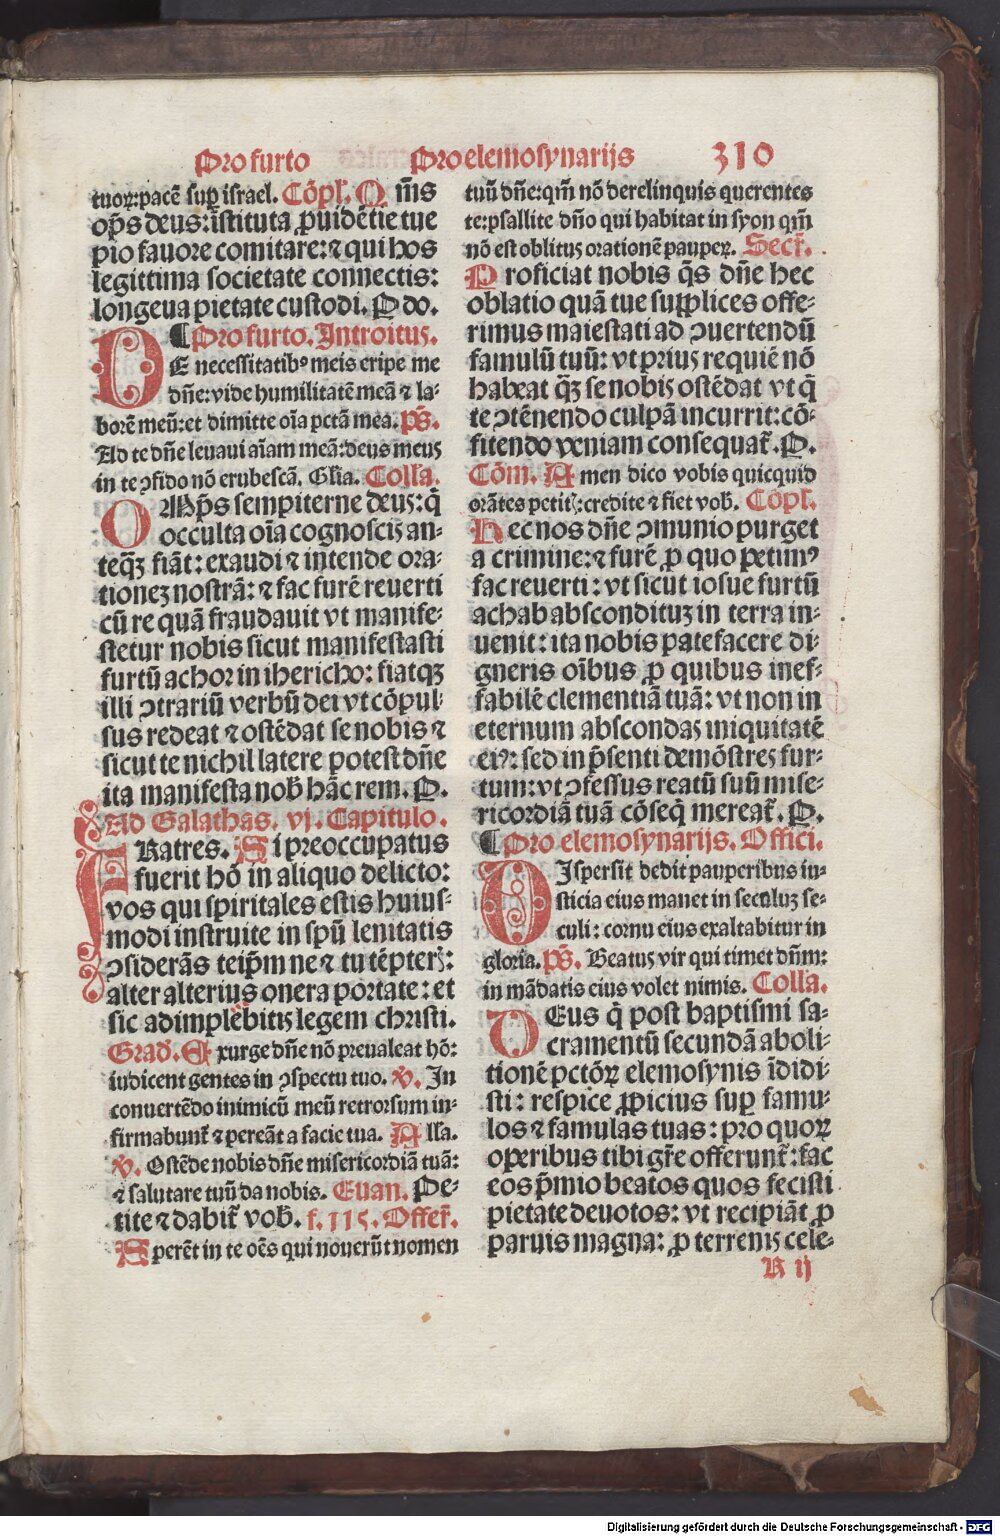 Pro furto Pro elemosynarijs 310
tuoꝝ:pacē suꝑ israel. Cōpl. Q m̄s
op̄s deus:īstituta ꝓuidētie tue
pio fauore comitare:⁊ qui hos
legittima societate connectis:
longeua pietate custodi. P do.
¶Pro furto. Introitus.
DE necessitatibꝰ meis eripe me
dn̄e:vide humilitatē meā ⁊ la-
borē meū:et dimitte oīa pctā mea. p̄s.
Ad te dn̄e leuaui aīam meā:deus meus
in te ꝯfido nō erubescā. Gl̄ia. Colla.
OMp̄s sempiterne deus:q̄
occulta oīa cognoscis an-
teqȝ fiāt: exaudi ⁊ intende ora-
tioneȝ nostrā: ⁊ fac furē reuerti
cū re quā fraudauit vt manife-
stetur nobis sicut manifestasti
furtū achor in ihericho: fiatqȝ
illi ꝯtrariū verbū dei vt cōpul-
sus redeat ⁊ ostēdat se nobis ⁊
sicut te nichil latere potest dn̄e
ita manifesta nob̄ hāc rem. P.
Ad Galathas. vj. Capitulo.
FRatres. Si preoccupatus
fuerit hō in aliquo delicto:
vos qui spiritales estis huius-
modi instruite in spū lenitatis
ꝯsiderās teip̄m ne ⁊ tu tēpteris:
alter alterius onera portate: et
sic adimplebitis legem christi.
Grad̄. Exurge dn̄e nō preualeat hō:
iudicent gentes in ꝯspectu tuo. v̄. In
conuertēdo inimicū meū retrorsum in-
firmabunt̄ ⁊ pereāt a facie tua. Alla.
v̄. Ostēde nobis dn̄e misericordiā tuā:
⁊ salutare tuū da nobis. Euan. Pe-
tite ⁊ dabit̄ vob̄. f. 115. Offer̄.
Sperēt in te oēs qui nouerūt nomen
tuū dn̄e:qm̄ nō derelinquis querentes
te:psallite dn̄o qui habitat in syon qm̄
nō est oblitus orationē pauperꝝ. Secr̄.
Proficiat nobis q̄s dn̄e hec
oblatio quā tue supplices offe-
rimus maiestati ad ꝯuertendū
famulū tuū: vt prius requiē nō
habeat qȝ se nobis ostēdat vt q̄
te ꝯtēnendo culpā incurrit: cō-
fitendo veniam consequat̄. P.
Cōm. Amen dico vobis quicquid
orātes petitis:credite ⁊ fiet vob̄. Cōpl.
Hec nos dn̄e ꝯmunio purget
a crimine: ⁊ furē ꝓ quo petimꝰ
fac reuerti: vt sicut iosue furtū
achab absconditu ȝ in terra in-
uenit: ita nobis patefacere di-
gneris oībus ꝓ quibus inef-
fabilē clementiā tuā: vt non in
eternum abscondas iniquitatē
eiꝰ: sed in p̄senti demōstres fur-
tum:vt ꝯfessus reatū suū mise-
ricordiā tuā cōseq̄ mereat̄. P.
¶Pro elemosynarijs. Offici.
DIspersit dedit pauperibus iu-
sticia eius manet in seculuȝ se-
culi: cornu eius exaltabitur in
gloria. p̄s. Beatus vir qui timet dn̄m:
in mādatis eius volet nimis. Colla.
DEus q̄ post baptismi sa-
cramentū secundā aboli-
tionē pctōꝝ elemosynis īdidi-
sti: respice ꝓpicius suꝑ famu-
los ⁊ famulas tuas: pro quoꝝ
operibus tibi gr̄e offerunt̄: fac
eos p̄mio beatos quos fecisti
pietate deuotos: vt recipiāt ꝓ
paruis magna: ꝓ terrenis cele-
R ij
Digitalisierung gefördert durch die Deutsche Forschungsgemeinschaft - DFG